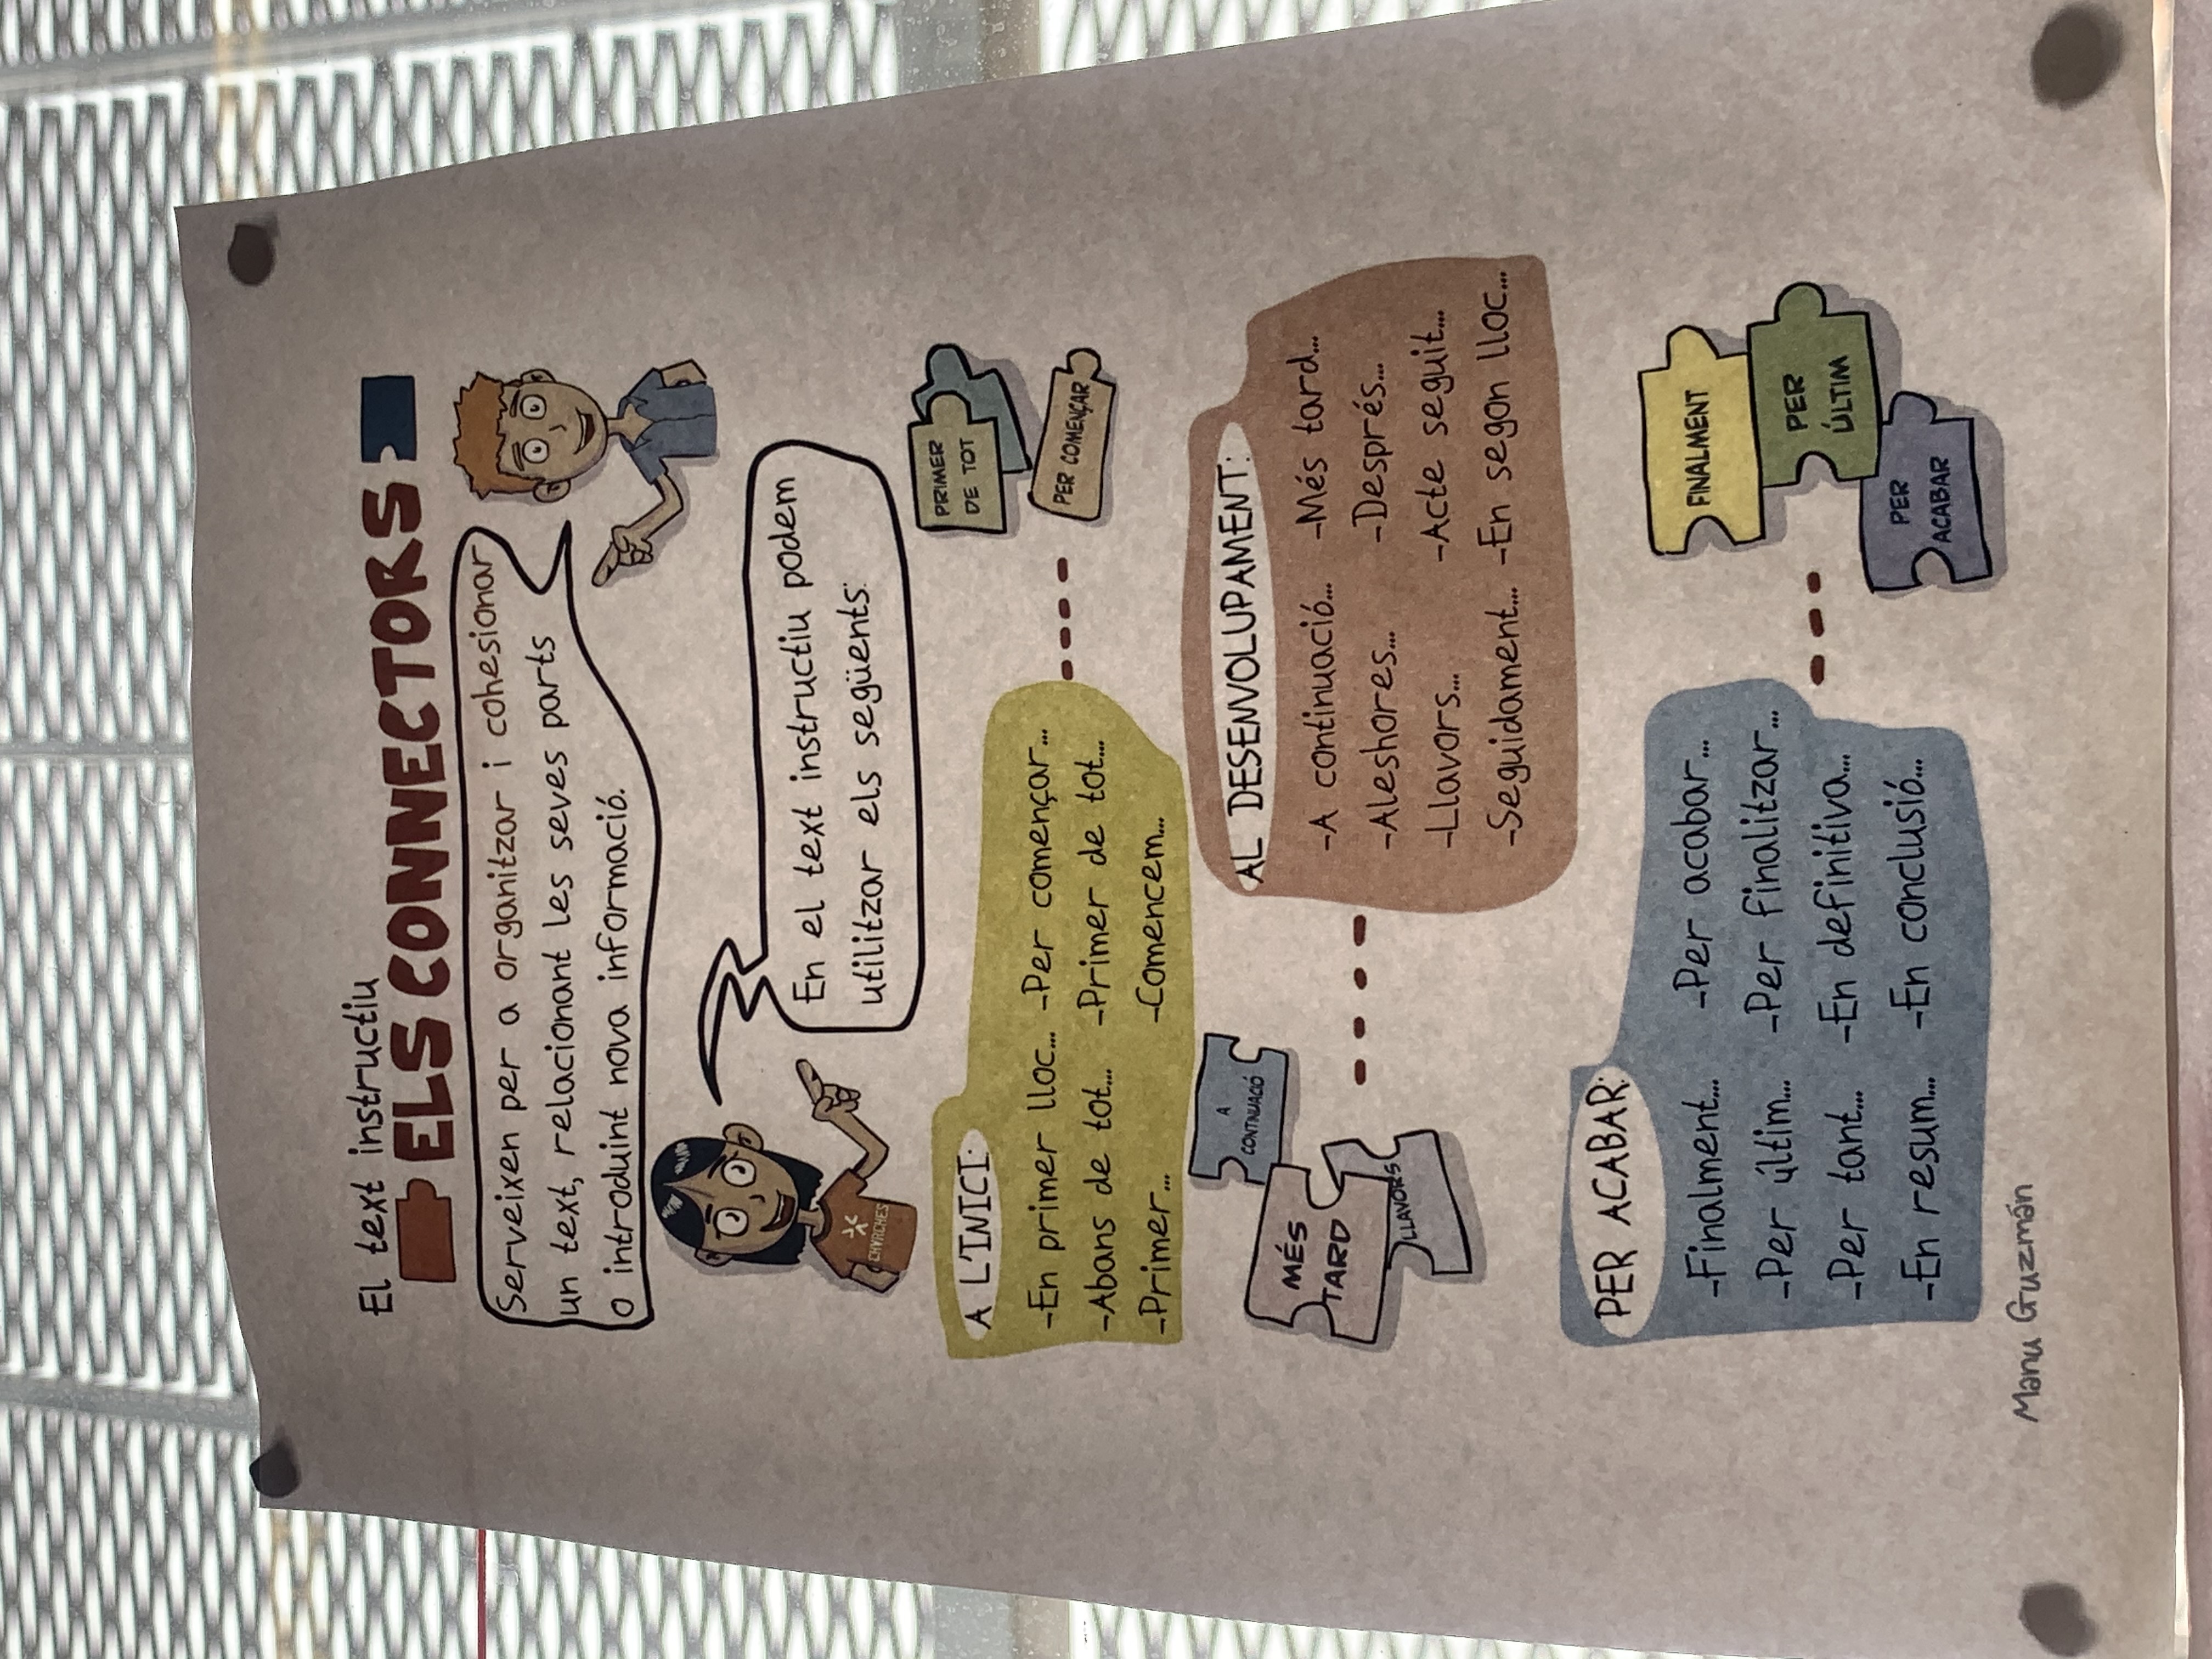 El text instructiu
ELS CONNECTORS
Serveixen per a organitzar i cohesionar
un text, relacionant les seves parts
o introduint nova informació.
En el text instructiu podem
utilitzar els següents:
CHVRCHES
A L'INICI:
-En primer lloc... -Per començar...
-Abans de tot... -Primer de tot...
-Primer... -Comencem...
PRIMER
DE TOT
PER COMENÇAR
A
CONTINUACIÓ
MÉS
TARD
LLAVORS
AL DESENVOLUPAMENT:
-A continuació... -Més tard...
-Aleshores... -Després...
-Llavors... -Acte seguit...
-Seguidament... -En segon lloc...
PER ACABAR:
-Finalment... -Per acabar...
-Per últim... -Per finalitzar...
-Per tant... -En definitiva...
-En resum... -En conclusió...
FINALMENT
PER
ÚLTIM
PER
ACABAR
Manu Guzmán